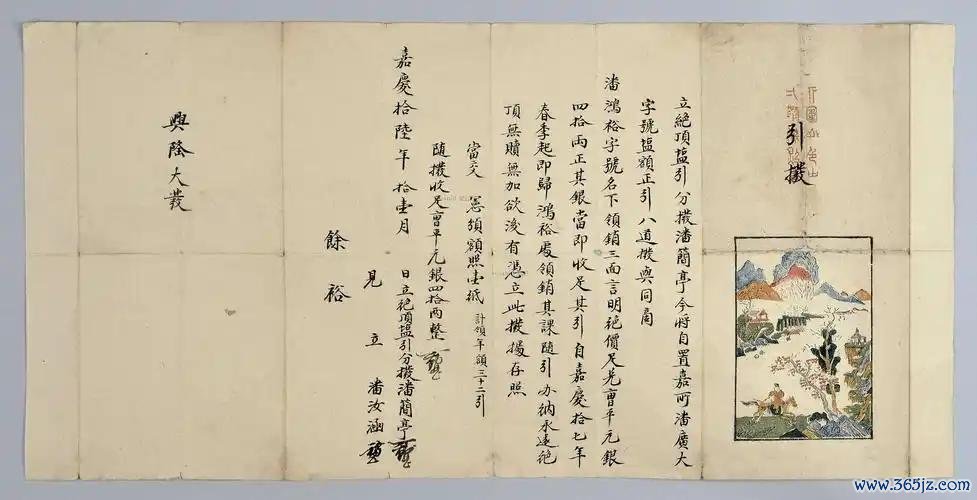 引撥
立絶頂塩引分撥潘蘭亭今將自置嘉所潘廣大
字號塩額正引八道撥與同局
潘鴻裕字號名下領銷三面言明絶價足兑曹平元銀
四拾兩正其銀當即收足其引自嘉慶拾七年
春季起即歸鴻裕處領銷其課隨引办納永遠絶
頂無贖無加欲後有憑立此撥據存照
當交 額照壹紙 計領年額三十二引
隨撥收足曹平元銀四拾兩整
嘉慶拾陸年拾壹月 日立絶頂塩引分撥潘蘭亭
見 立 潘汝涵
餘 裕
興隆大發
www.365jz.com